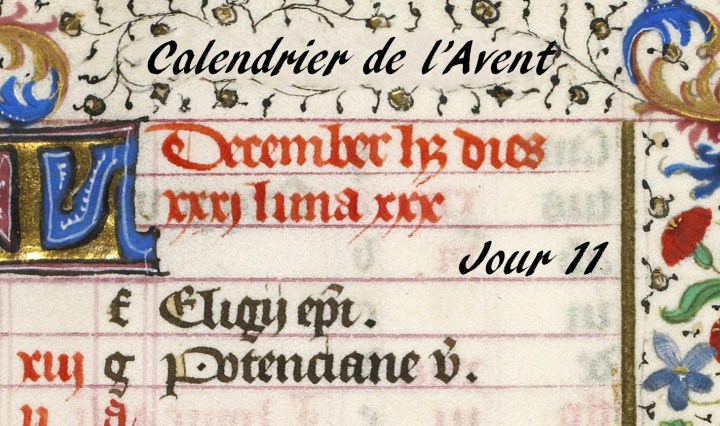 Calendrier de l'Avent
KL
December hꝫ dies
xxxj luna xxx
Jour 11
f Eligij ep̃i.
xiij g Potenciane v̾.
ij A